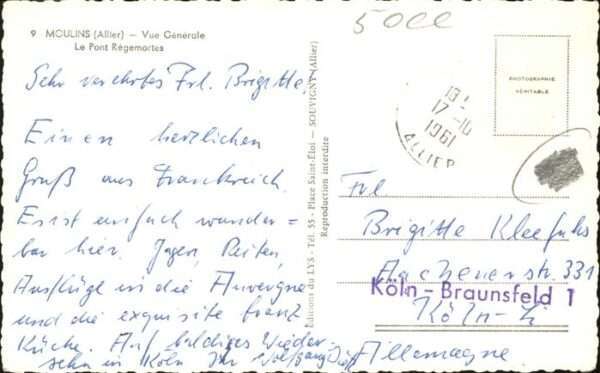 9 MOULINS (Allier) — Vue Générale
Le Pont Régemortes
Sehr verehrtes Frl. Brigitte!
Einen herzlichen
Gruß aus Frankreich.
Es ist einfach wunder=
bar hier. Jagen, Reiten,
Ausflüge in die Auvergne
und die exquisite franz
Küche. Auf baldiges Wieder
sehn in Köln Ihr Wolfgang
Editions du LYS - Tél. 55 - Place Saint-Eloi - SOUVIGNY (Allier)
Reproduction interdite
5000
17-10
1961
ALLIER
PHOTOGRAPHIE
VÉRITABLE
Frl
Brigitte Kleefuhs
Aachenerstr. 331
Köln-Braunsfeld 1
Köln-
Allemagne